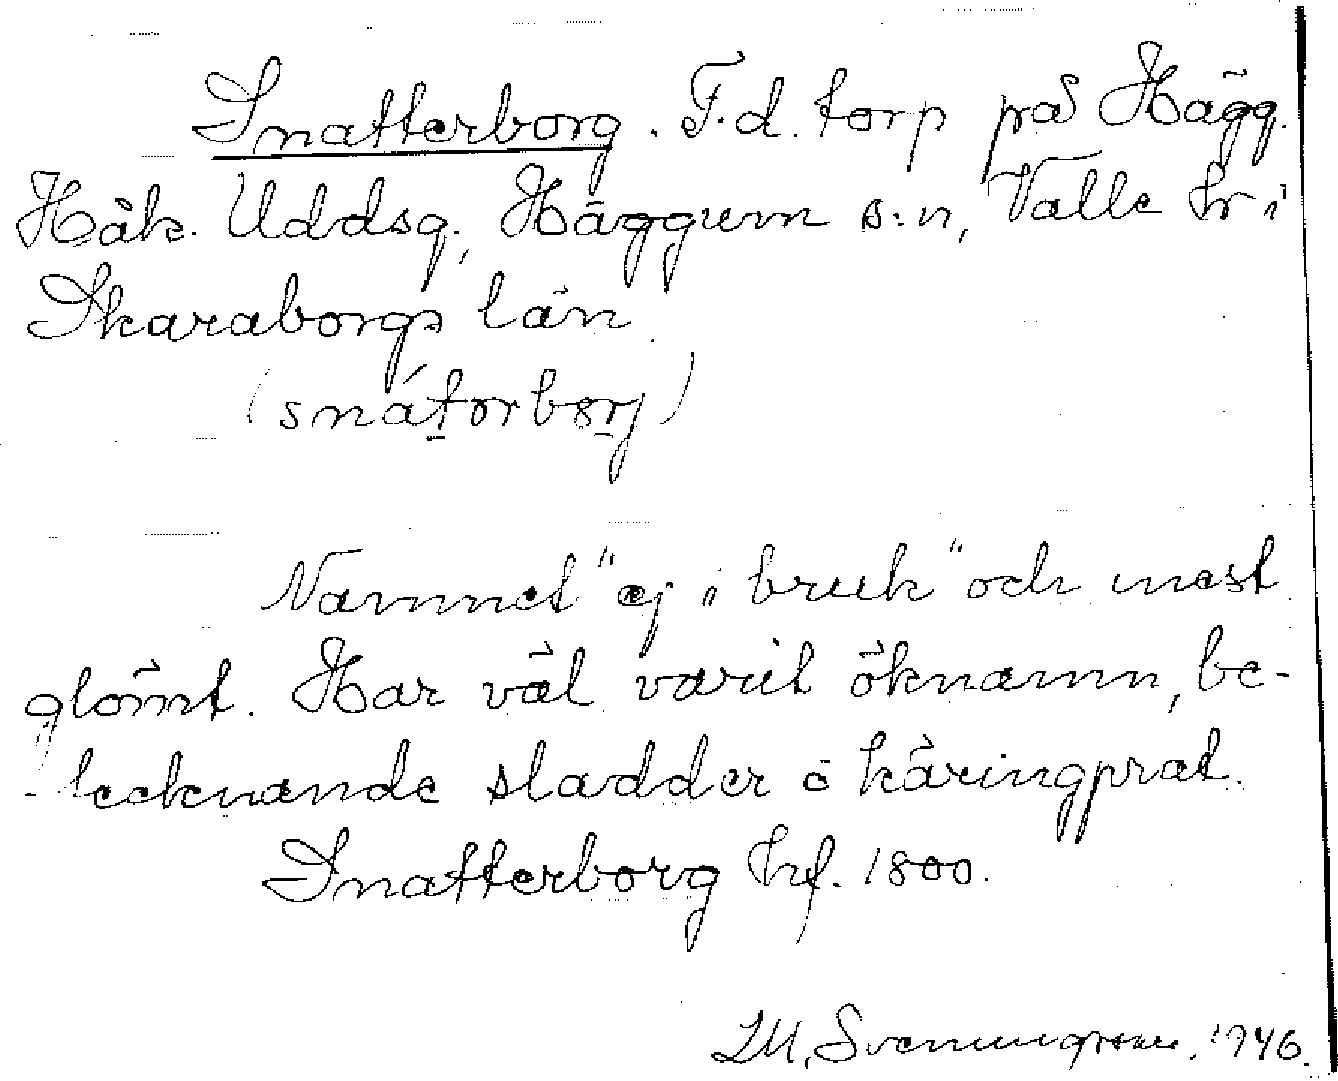 Snatterborg. F.d. torp på Hägg.
Håk. Uddsg., Häggum s:n, Valle hr i
Skaraborgs län.
(snátorborj)
Namnet "ej i bruk" och mest
glömt. Har väl varit öknamn, be-
tecknande sladder o käringprat.
Snatterborg hfl. 1800.
Svenningsson. 1946.